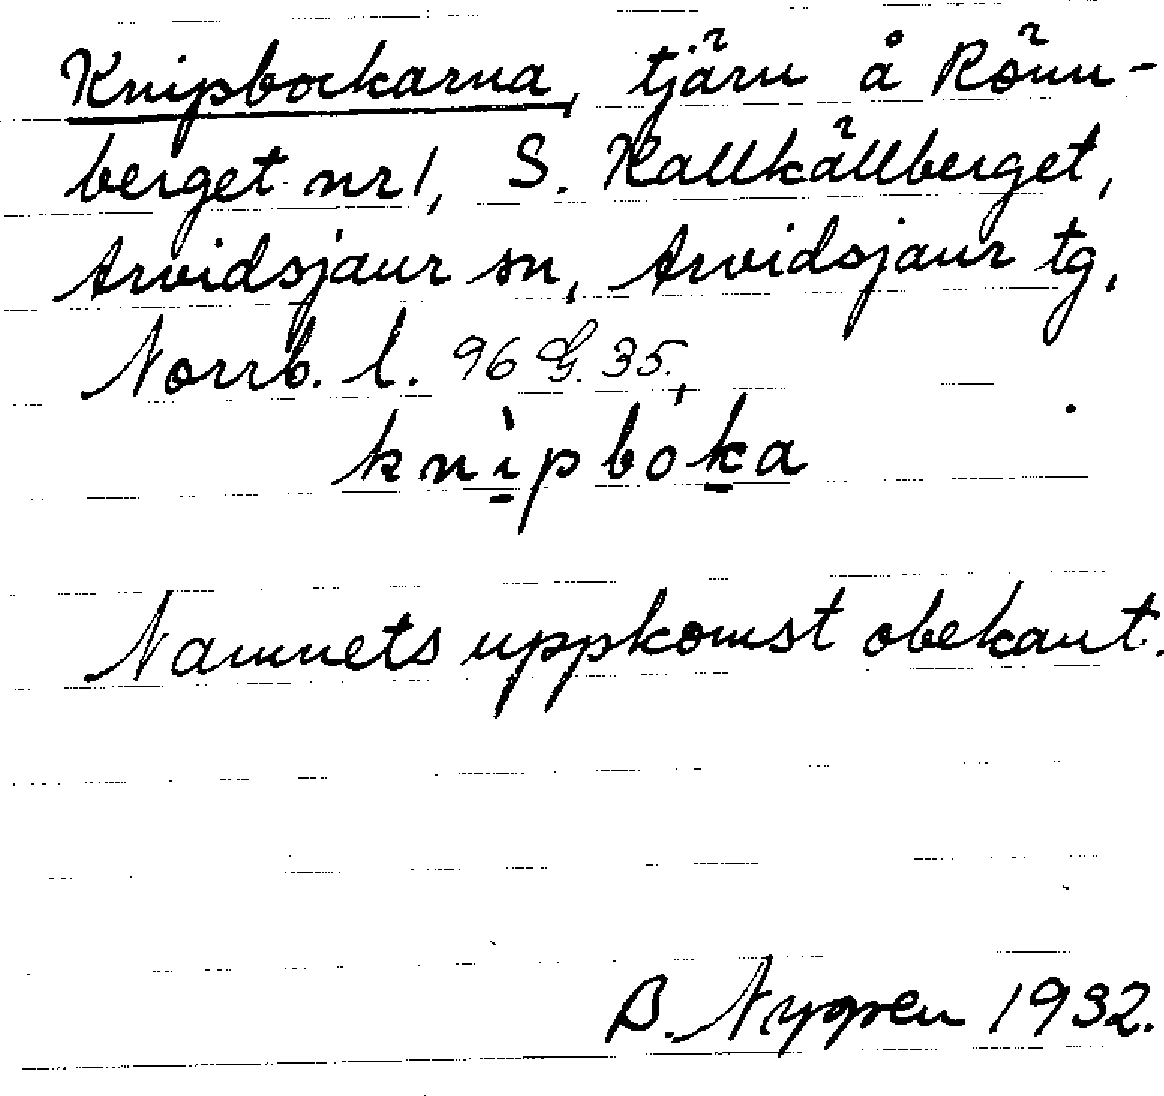 Knipbockarna, tjärn å Rönn-
berget nr 1, S. Kallkällberget,
Arvidsjaur sn, Arvidsjaur tg,
Norrb. l. 96 G. 35.
knìpbó̱ka
Namnets uppkomst obekant.
B. Nygren 1932.